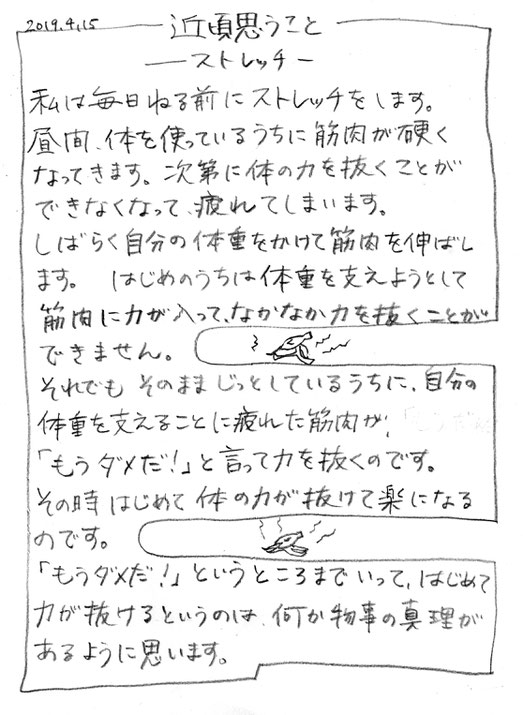 2019.4.15
近頃思うこと
ーストレッチー
私は毎日ねる前にストレッチをします。
昼間、体を使っているうちに筋肉が硬く
なってきます。次第に体の力を抜くことが
できなくなって、疲れてしまいます。
しばらく自分の体重をかけて筋肉を伸ばし
ます。 はじめのうちは体重を支えようとして
筋肉に力が入って、なかなか力を抜くことが
できません。
それでも そのままじっとしているうちに、自分の
体重を支えることに疲れた筋肉が、
「もうダメだ!」と言って力を抜くのです。
その時はじめて体の力が抜けて楽になる
のです。
「もうダメだ!」というところまでいって、はじめて
力が抜けるというのは、何か物事の真理が
あるように思います。